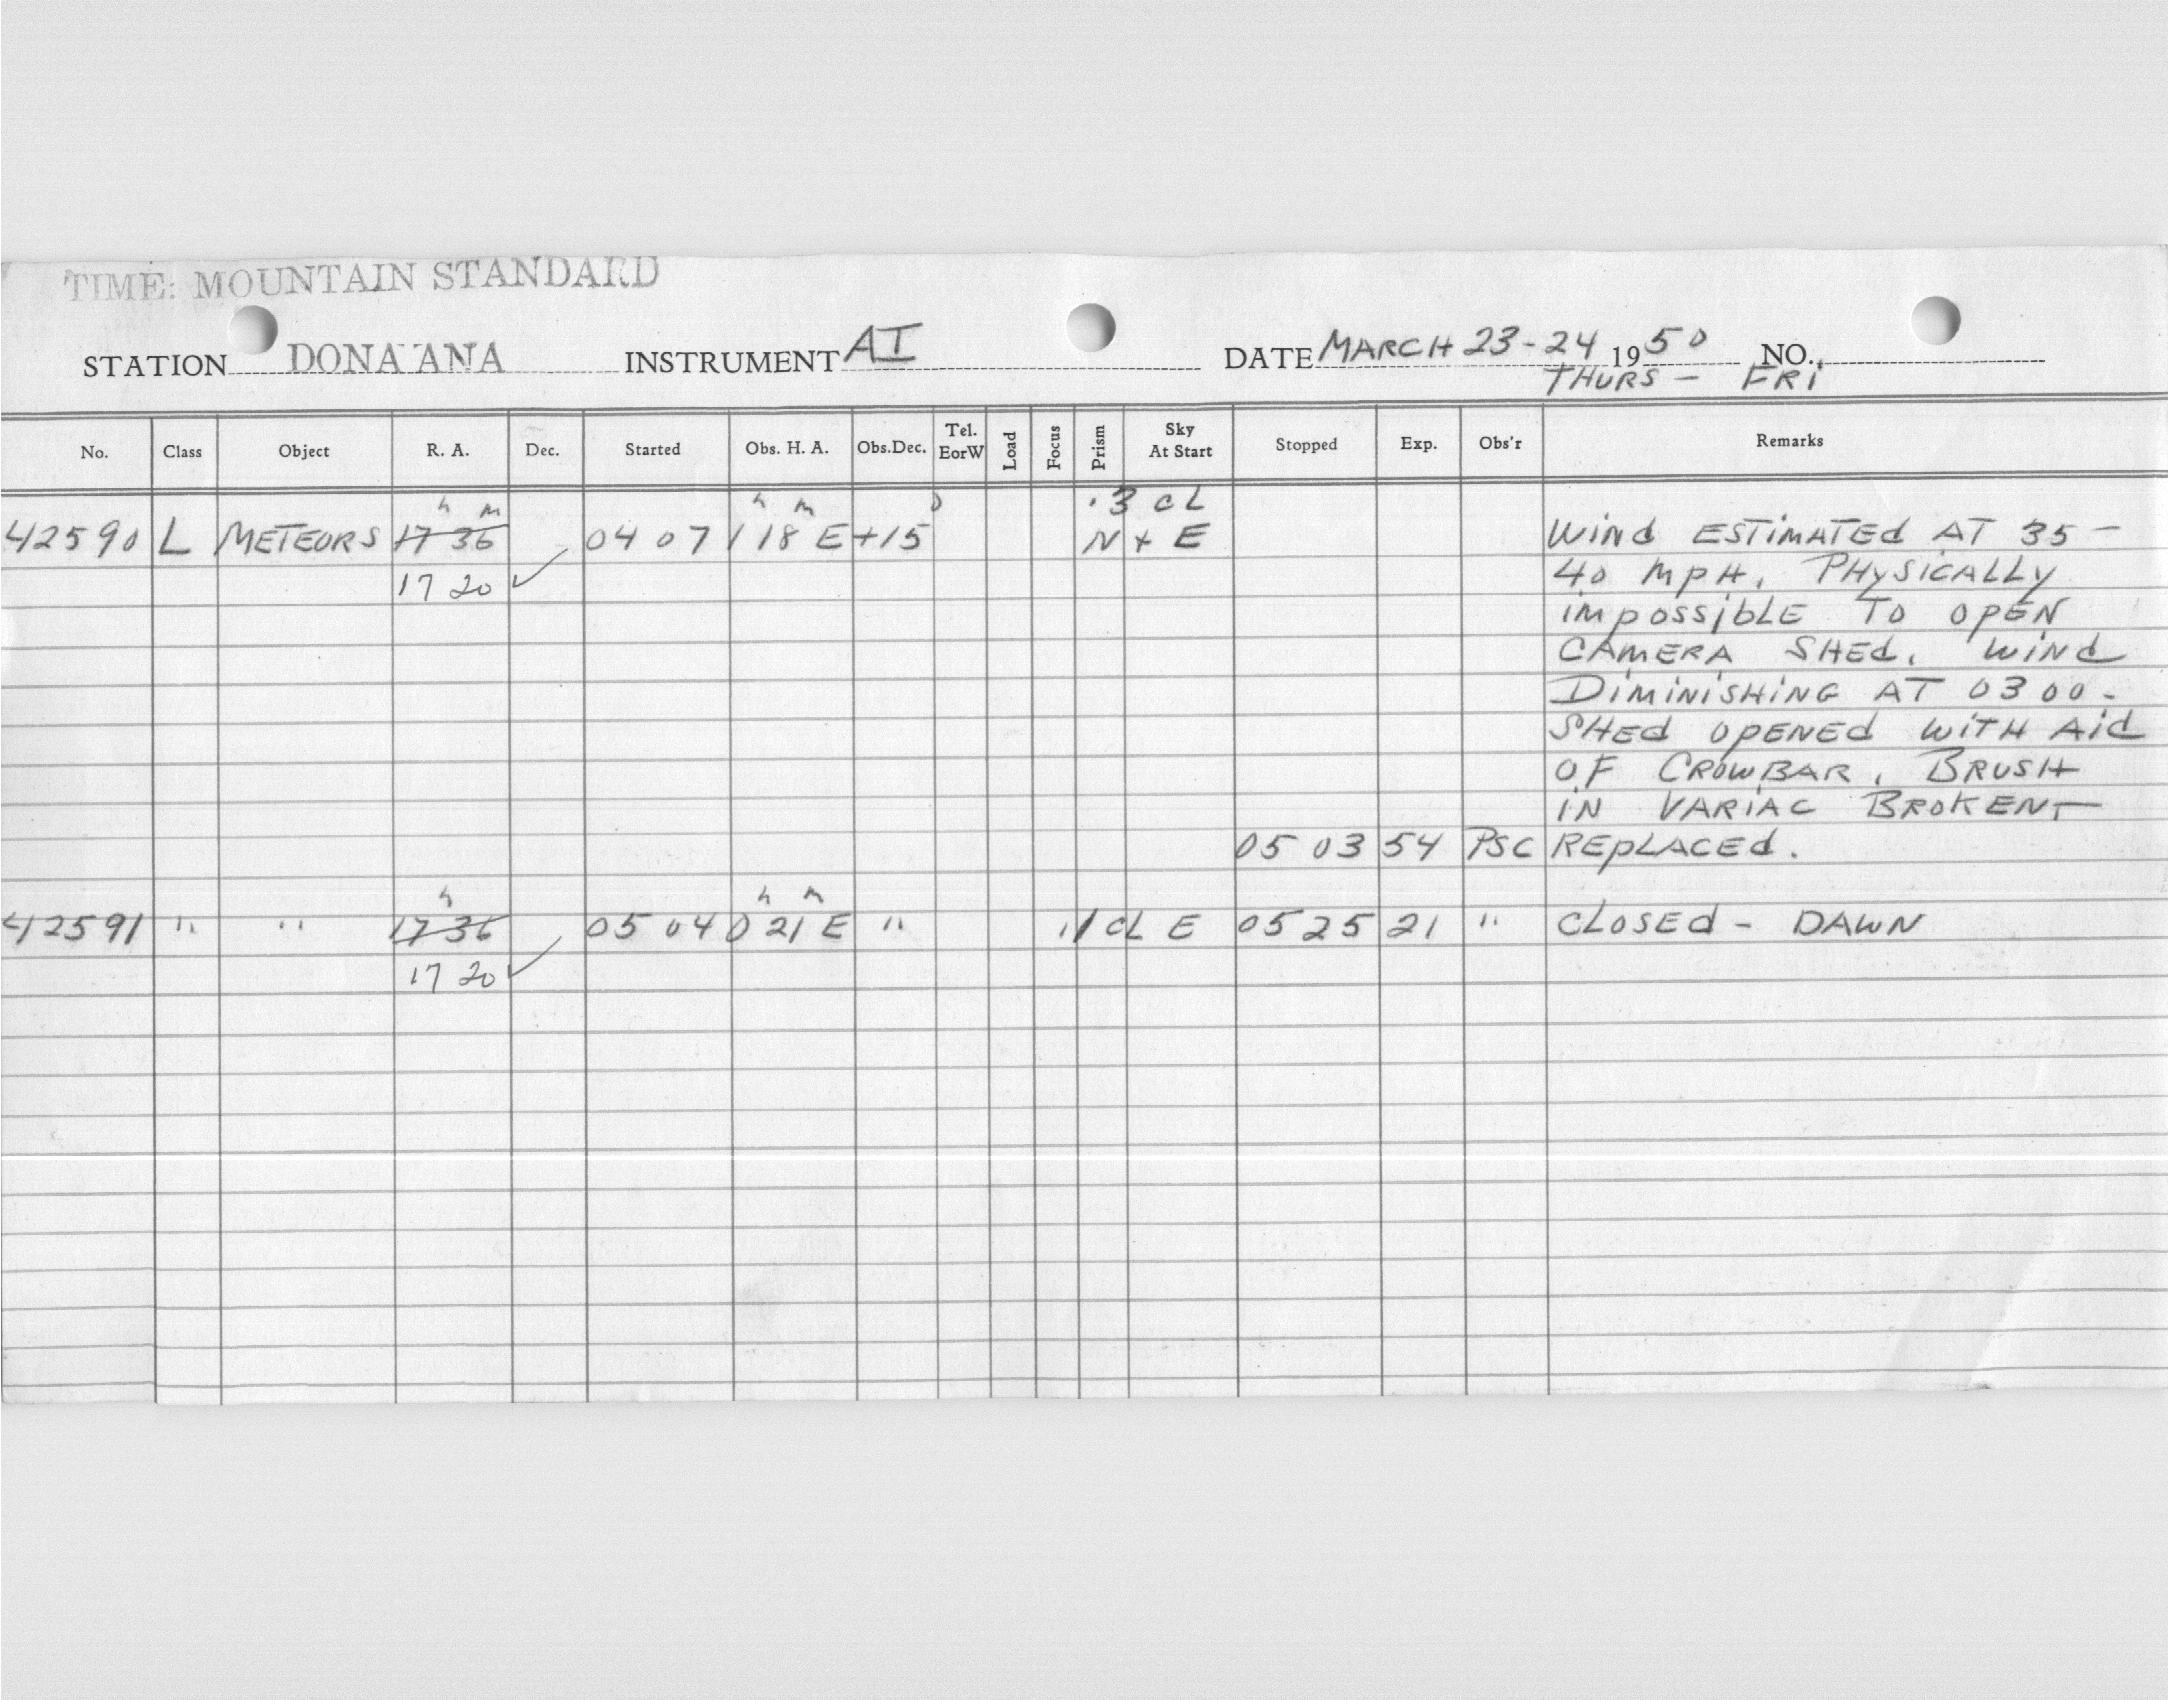 TIME: MOUNTAIN STANDARD
STATION DONA ANA INSTRUMENT AI DATE MARCH 23-24 1950 NO.
THURS - FRI
No. Class Object R. A. Dec. Started Obs. H. A. Obs.Dec. Tel. EorW Load Focus Prism Sky At Start Stopped Exp. Obs'r Remarks
h m h m 0 .3 CL
42590 L METEORS 17 36 04 07 1 18 E +15 N + E WIND ESTIMATED AT 35-
17 20 ✓ 40 MPH. PHYSICALLY
IMPOSSIBLE TO OPEN
CAMERA SHED. WIND
DIMINISHING AT 0300-
SHED OPENED WITH AID
OF CROWBAR. BRUSH
IN VARIAC BROKEN-
05 03 54 PSC REPLACED.
h h m
42591 " " 17 36 05 04 0 21 E " .1 CL E 05 25 21 " CLOSED - DAWN
17 20 ✓